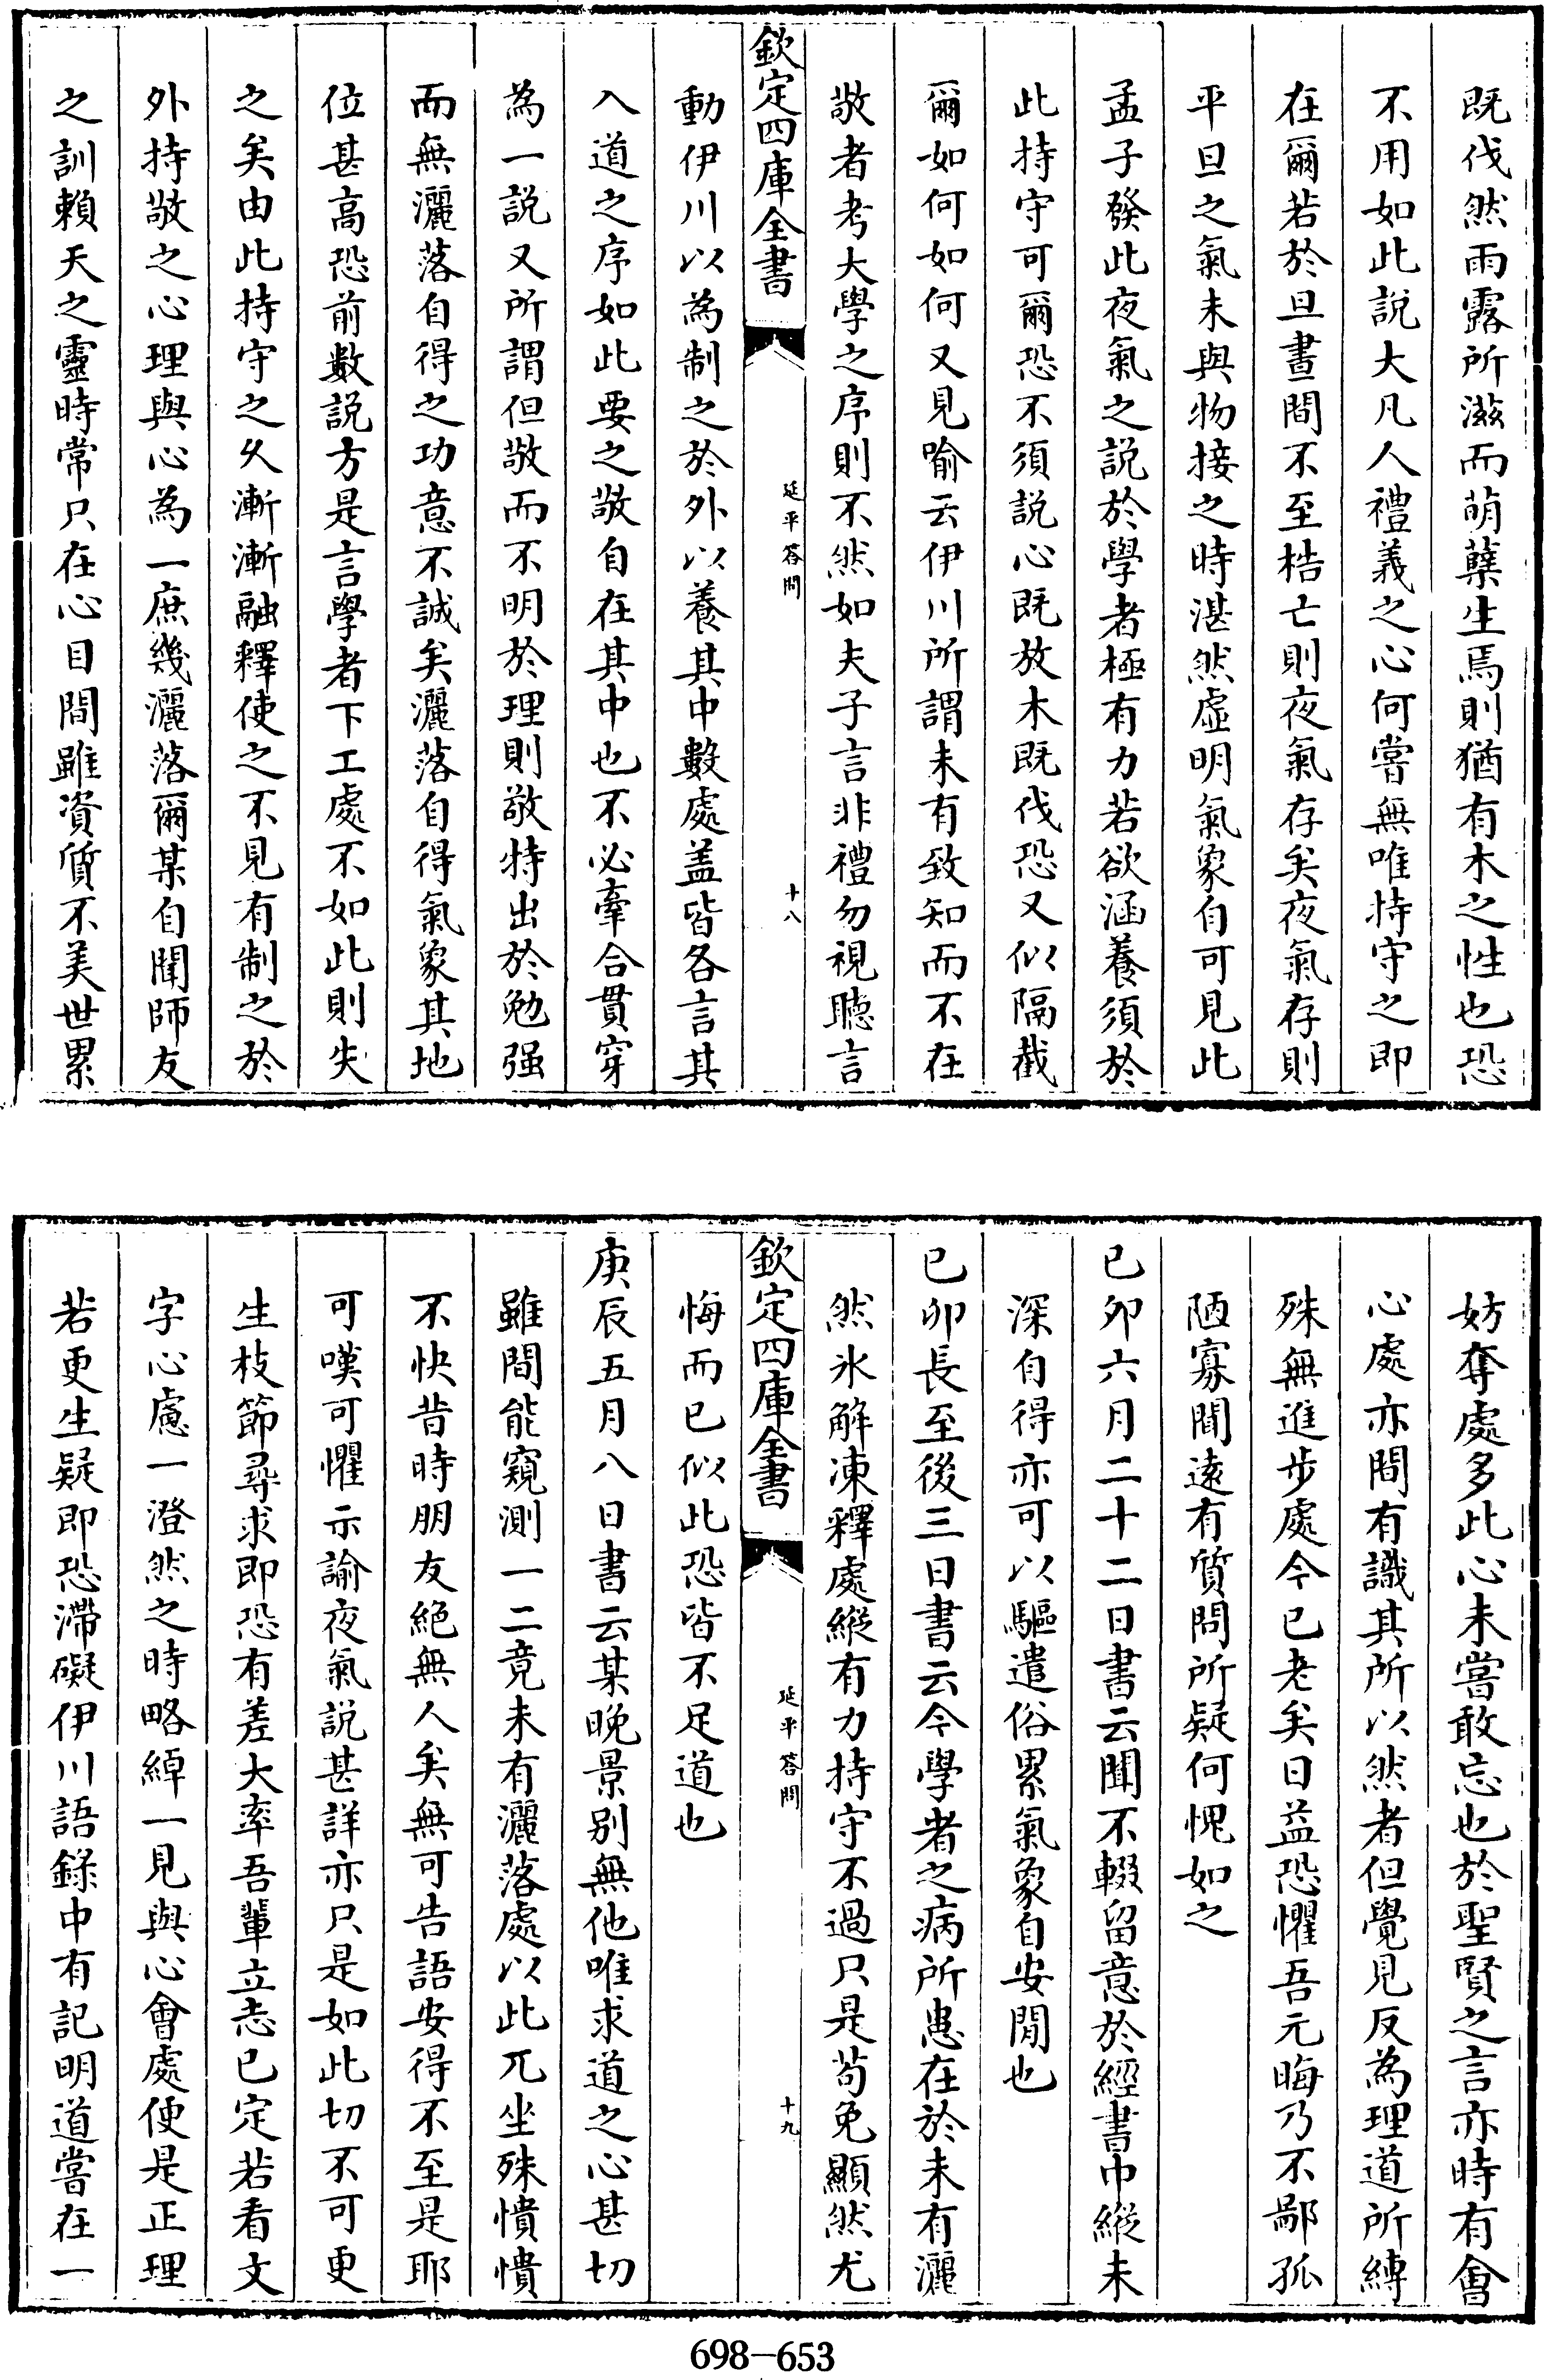 既伐然雨露所滋而萌蘖生焉則猶有木之性也恐
不用如此說大凡人禮義之心何嘗無唯持守之即
在爾若於旦晝間不至梏亡則夜氣存矣夜氣存則
平旦之氣未與物接之時湛然虛明氣象自可見此
孟子發此夜氣之說於學者極有力若欲涵養須於
此持守可爾恐不須說心既放木既伐恐又似隔截
爾如何如何又見喻云伊川所謂未有致知而不在
敬者考大學之序則不然如夫子言非禮勿視聽言
欽定四庫全書
延平答問
十八
動伊川以為制之於外以養其中數處盖皆各言其
入道之序如此要之敬自在其中也不必牽合貫穿
為一說又所謂但敬而不明於理則敬特出於勉强
而無灑落自得之功意不誠矣灑落自得氣象其地
位甚高恐前數說方是言學者下工處不如此則失
之矣由此持守之久漸漸融釋使之不見有制之於
外持敬之心理與心為一庶幾灑落爾某自聞師友
之訓賴天之靈時常只在心目間雖資質不美世累
妨奪處多此心未嘗敢忘也於聖賢之言亦時有會
心處亦間有識其所以然者但覺見反為理道所縛
殊無進步處今已老矣日益恐懼吾元晦乃不鄙孤
陋寡聞遠有質問所疑何愧如之
已夘六月二十二日書云聞不輟留意於經書中縱未
深自得亦可以驅遣俗累氣象自安閒也
已卯長至後三日書云今學者之病所患在於未有灑
然氷解凍釋處縱有力持守不過只是苟免顯然尤
欽定四庫全書
延平答問
十九
悔而已似此恐皆不足道也
庚辰五月八日書云某晚景别無他唯求道之心甚切
雖間能窺測一二竟未有灑落處以此兀坐殊憒憒
不快昔時朋友絶無人矣無可告語安得不至是耶
可嘆可懼示諭夜氣說甚詳亦只是如此切不可更
生枝節尋求即恐有差大率吾輩立志已定若看文
字心慮一澄然之時略綽一見與心會處便是正理
若更生疑即恐滯礙伊川語錄中有記明道嘗在一
698-653